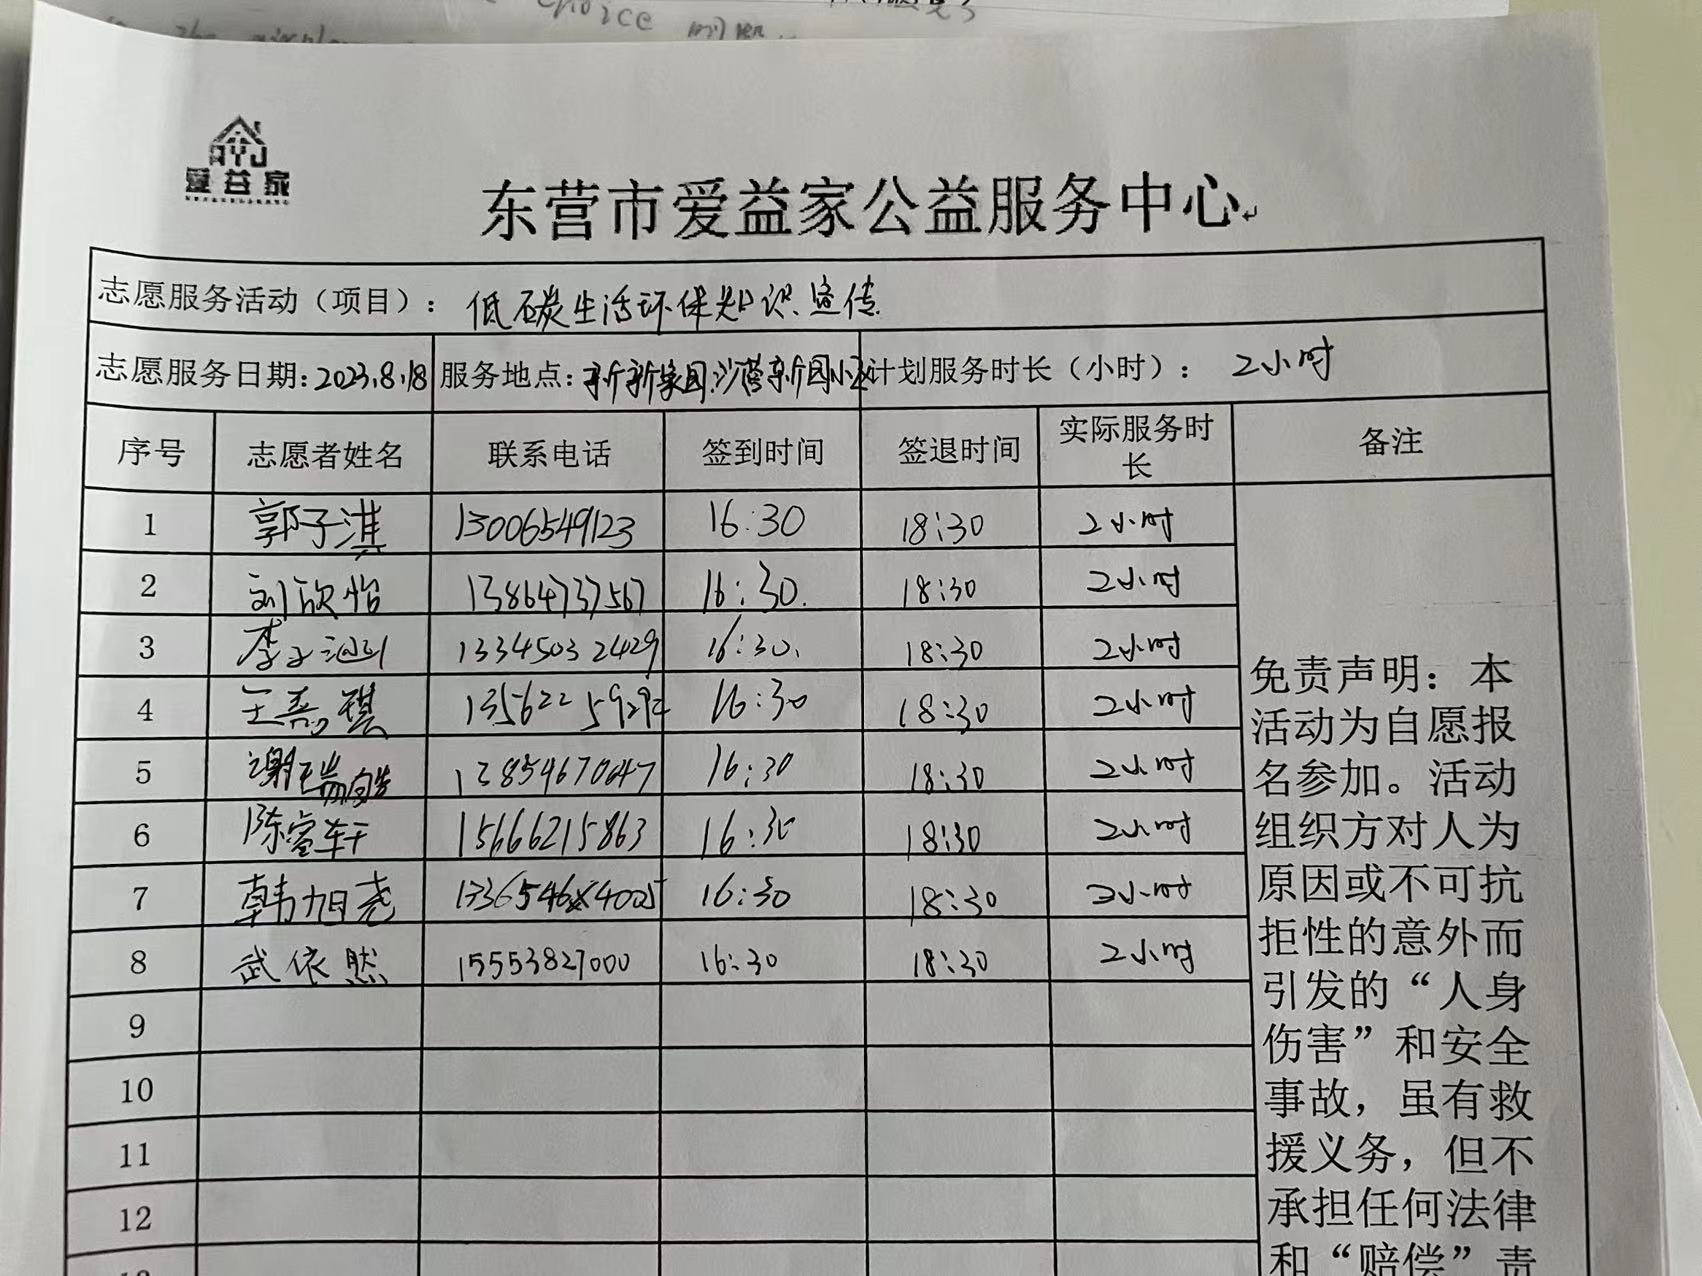 choice
爱益家
东营市爱益家公益服务中心
志愿服务活动（项目）：低碳生活环保知识宣传
志愿服务日期:2023.8.18 服务地点: 计划服务时长（小时）：2小时
序号 志愿者姓名 联系电话 签到时间 签退时间 实际服务时长 备注
1 郭子淇 13006549123 16:30 18:30 2小时
2 刘欣怡 13864737567 16:30 18:30 2小时
3 13345032429 16:30 18:30 2小时
4 16:30 18:30 2小时
5 16:30 18:30 2小时
6 陈睿轩 15666215863 16:30 18:30 2小时
7 韩旭尧 16:30 18:30 2小时
8 武依然 15553827000 16:30 18:30 2小时
9
10
11
12
免责声明：本
活动为自愿报
名参加。活动
组织方对人为
原因或不可抗
拒性的意外而
引发的“人身
伤害”和安全
事故，虽有救
援义务，但不
承担任何法律
和“赔偿”责